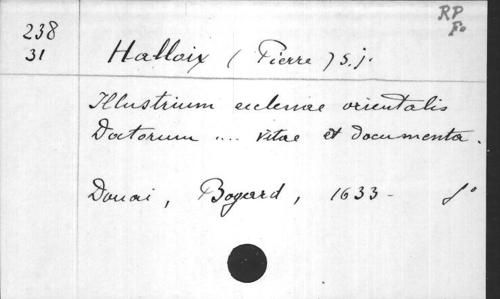 RP
Fo
238
31
Halloix (Pierre) s.j.
Illustrium ecclesiae orientalis
Doctorum .... vitae et documenta.
Douai, Bogard, 1633 - fo